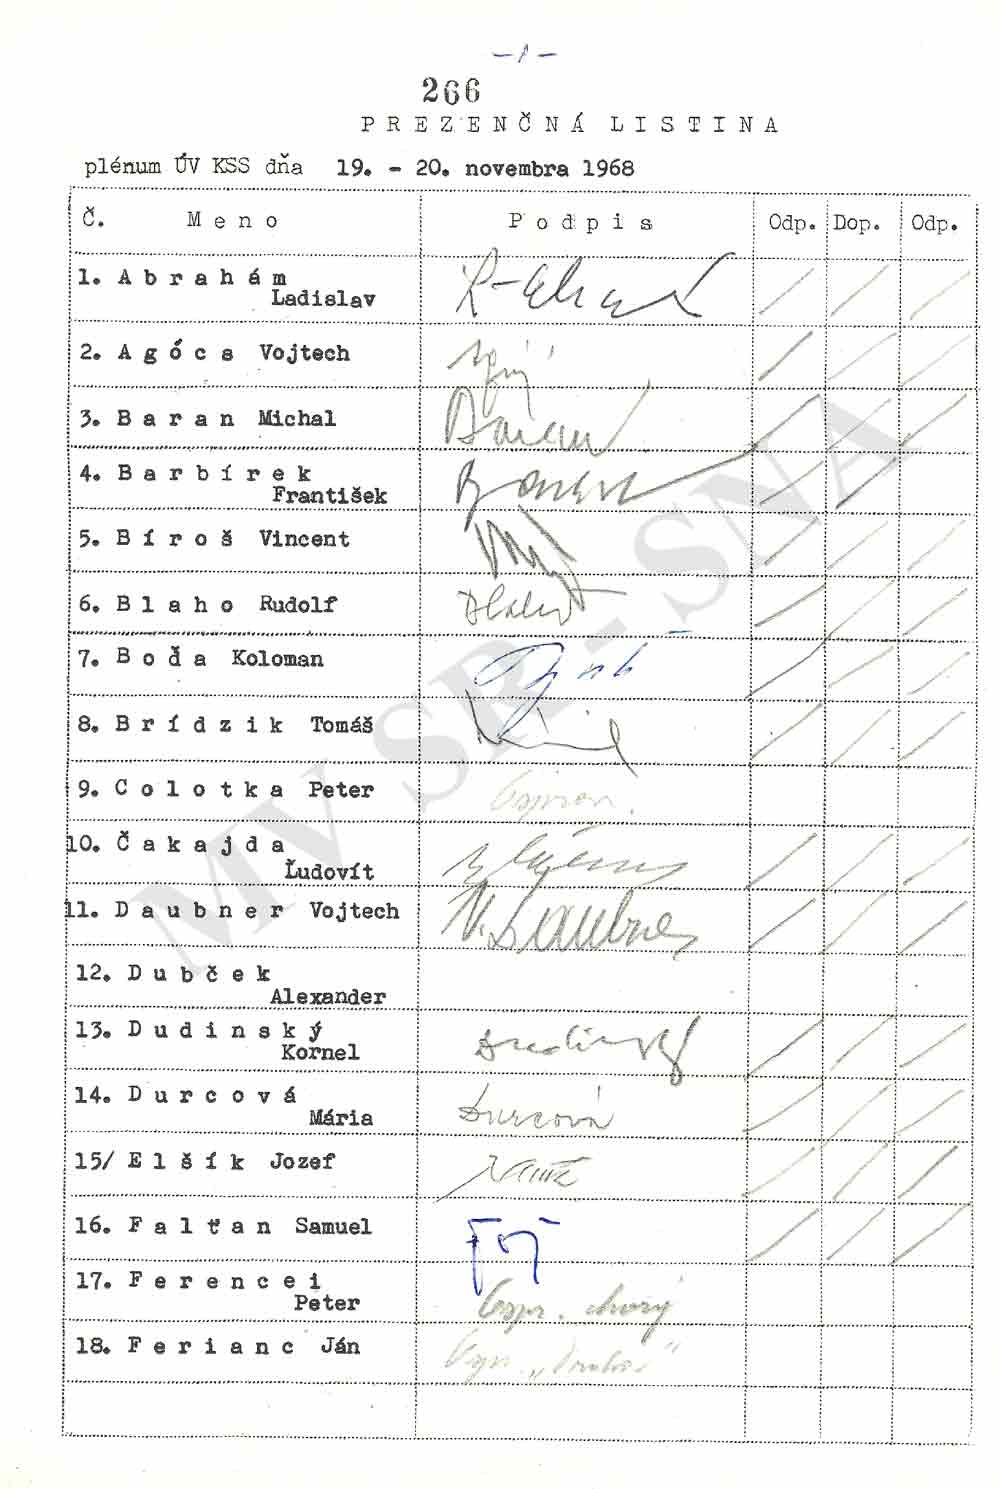 - 1 -
266
PREZENČNÁ LISTINA
plénum ÚV KSS dňa 19. - 20. novembra 1968
Č. Meno Podpis Odp. Dop. Odp.
1. Abrahám
Ladislav
2. Agócs Vojtech
3. Baran Michal Baran
4. Barbírek
František
5. Bíroš Vincent
6. Blaho Rudolf
7. Boďa Koloman
8. Brídzik Tomáš
9. Colotka Peter
10. Čakajda
Ľudovít
11. Daubner Vojtech V. Daubner
12. Dubček
Alexander
13. Dudinský
Kornel Dudinský
14. Durcová
Mária Durcová
15/ Elšík Jozef
16. Falťan Samuel
17. Ferencei
Peter Ospr. chorý
18. Ferianc Ján
MV SR - SNA